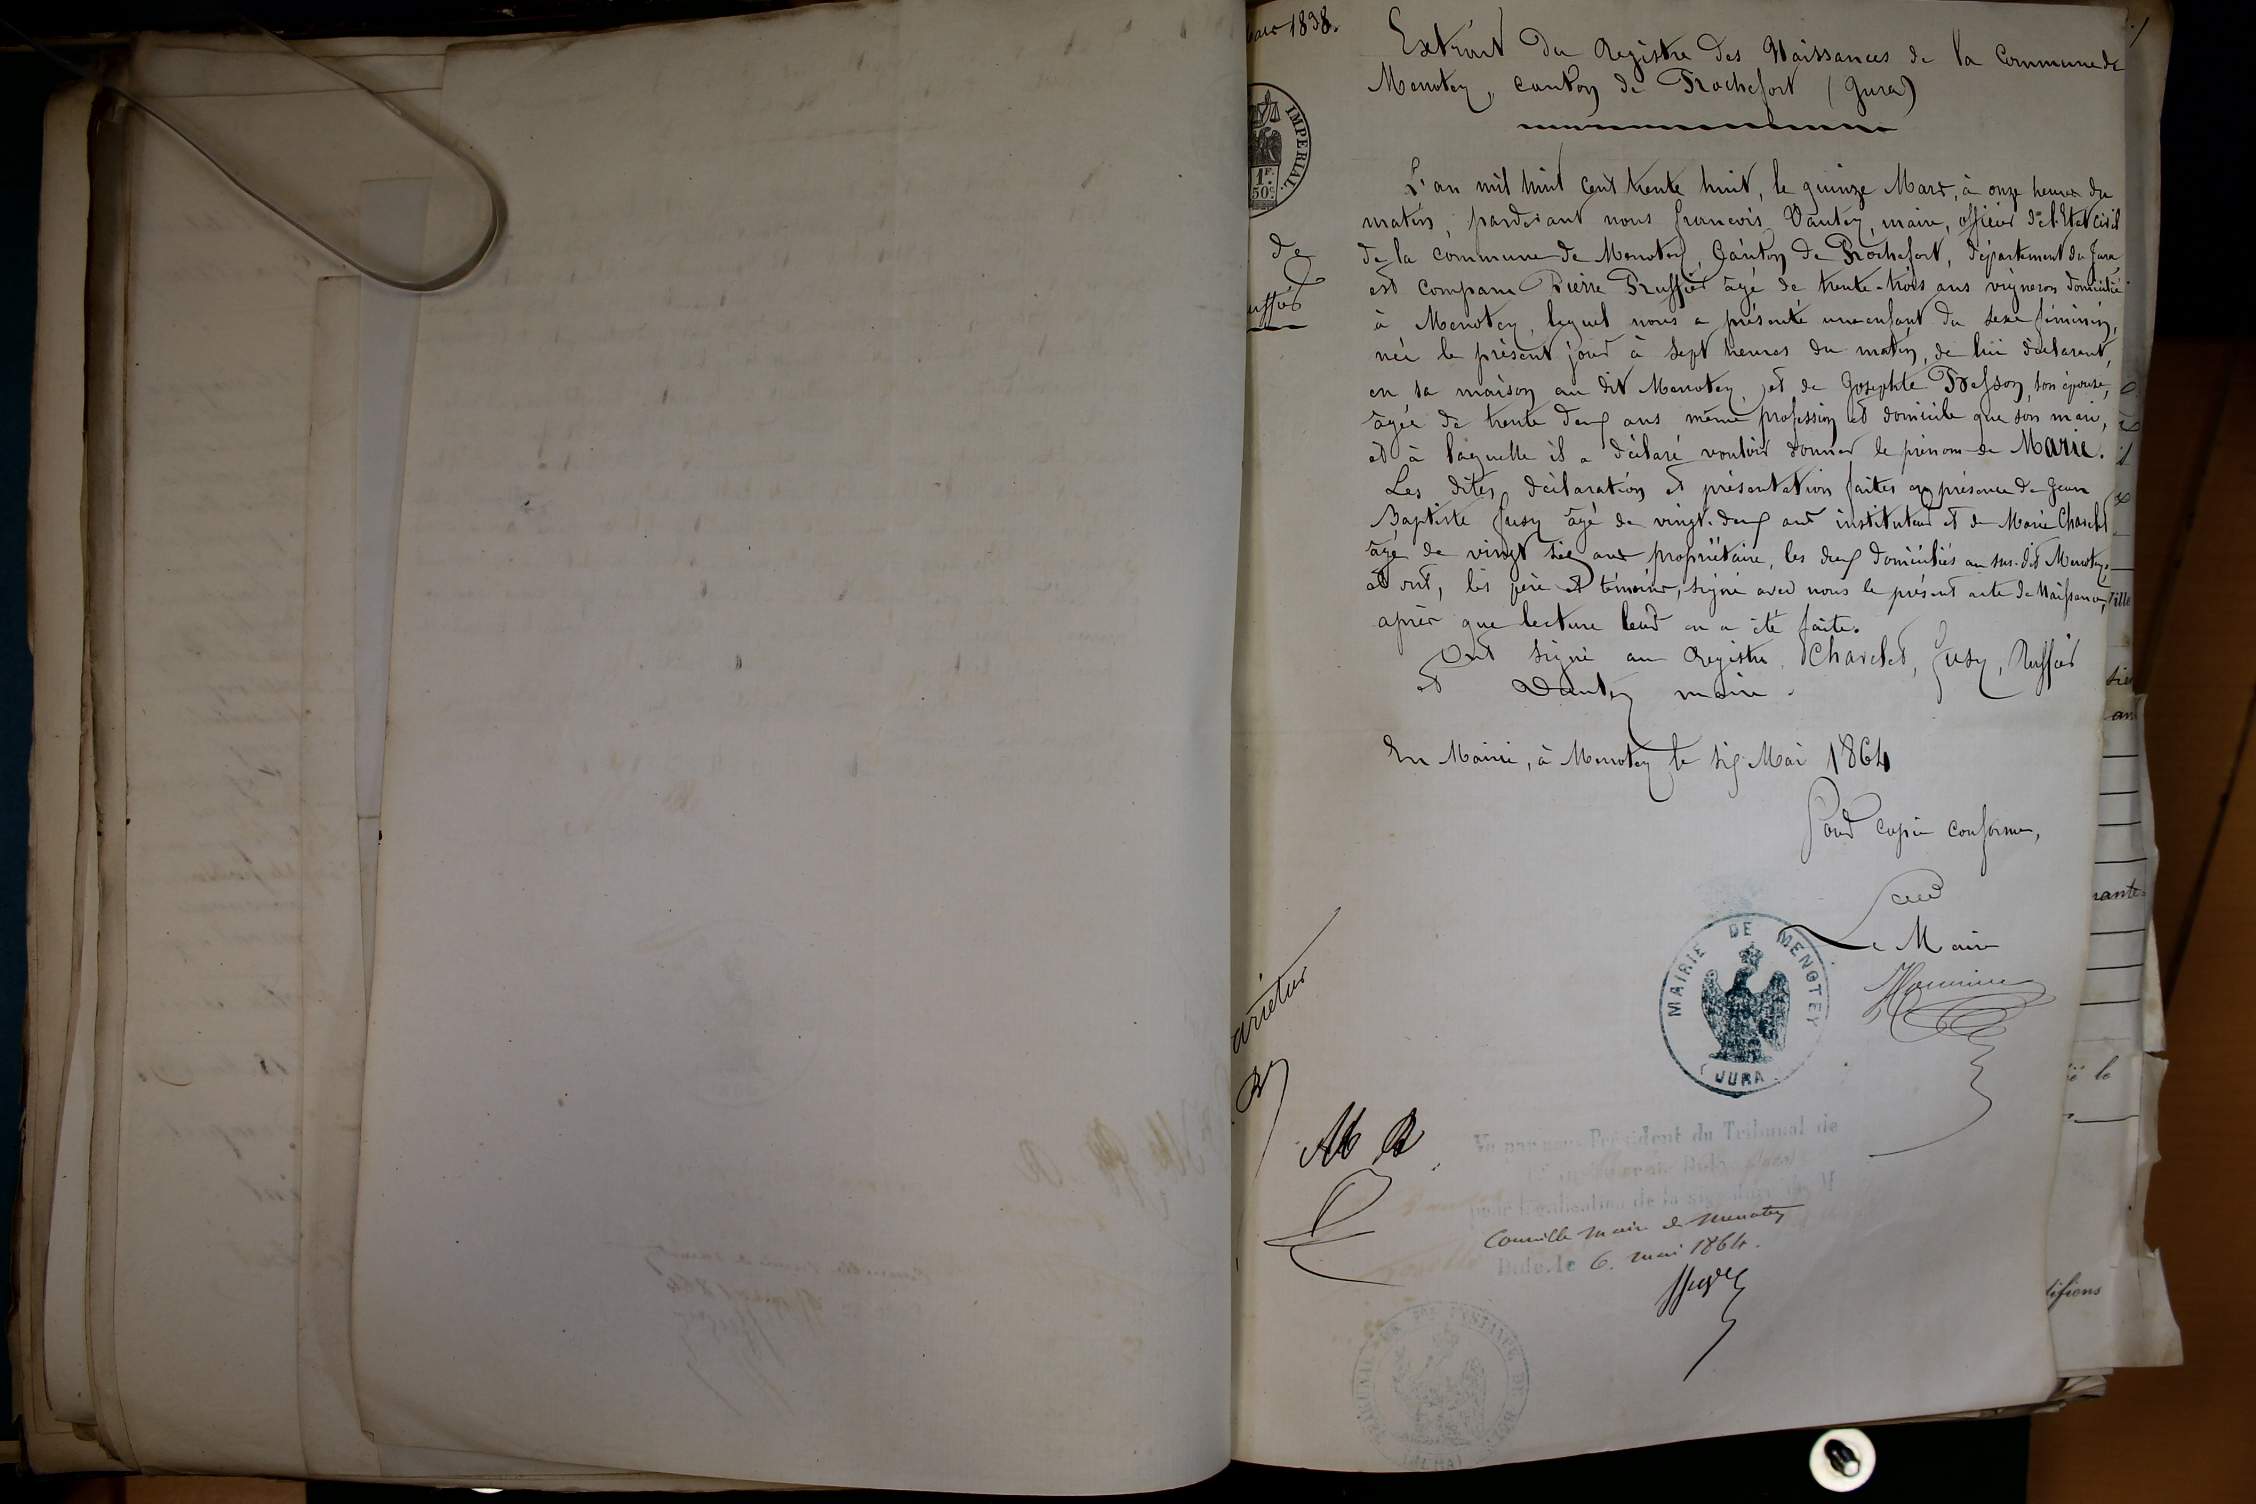 1838.
Extrait du Registre des Naissances de la Commune de
Menotey, canton de Rochefort (Jura)
IMPERIAL.
1F.
50c.
L'an mil huit cent trente huit, le quinze Mars, à onze heures du
matin, pardevant nous françois Vautey, maire, officier de l'Etat civil
de la commune de Menotey, Canton de Rochefort, département du Jura
est comparu Pierre Ruffier âgé de trente-trois ans vigneron domicilié
à Menotey, lequel nous a présenté une enfant du sexe féminin,
née le présent jour à sept heures du matin, de lui déclarant,
en sa maison au dit Menotey, et de Josephte son épouse,
âgée de trente deux ans même profession et domicile que son mari,
et à laquelle il a déclaré vouloir donner le prénom de Marie.
Les dites déclaration et présentation faites en présence de Jean
Baptiste Jusy âgé de vingt-deux ans instituteur et de Marie Chavelet
âgé de vingt six ans propriétaire, les deux domiciliés au sus-dit Menotey,
et ont, les père et témoins, signé avec nous le présent acte de Naissance,
après que lecture leur en a été faite.
Ont signé au Registre Chavelet, Jusy, Ruffier
et Vautey maire.
En Mairie, à Menotey le six Mai 1864
Pour copie conforme,
Le Maire
MAIRIE DE MENOTEY
(JURA)
de
uffier
arietur
Vu par nous Président du Tribunal de
pour légalisation de la signature de M
Cournille maire de Menotey
Dole, le 6. mai 1864.
TRIBUNAL DE 1ère INSTANCE DE DOLE
(JURA)
ille
an
rante
ié le
tifions